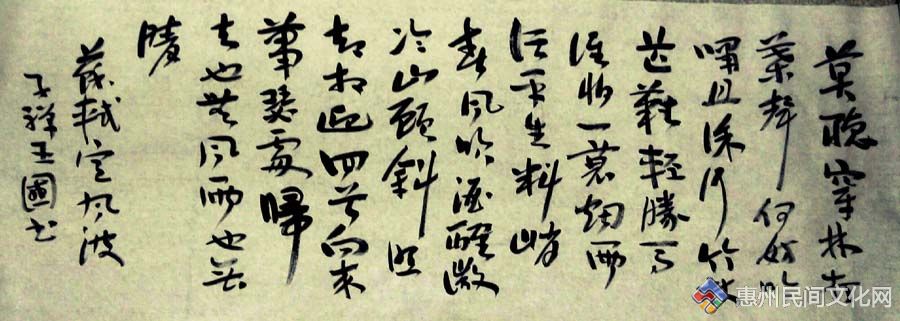 莫聽穿林打
葉聲何妨吟
嘯且徐行竹杖
芒鞋輕勝馬
誰怕一蓑烟雨
任平生料峭
春風吹酒醒微
冷山頭斜照
却相迎回首向來
蕭瑟處歸
去也無風雨也無
晴
蘇軾定風波
王國书
惠州民间文化网